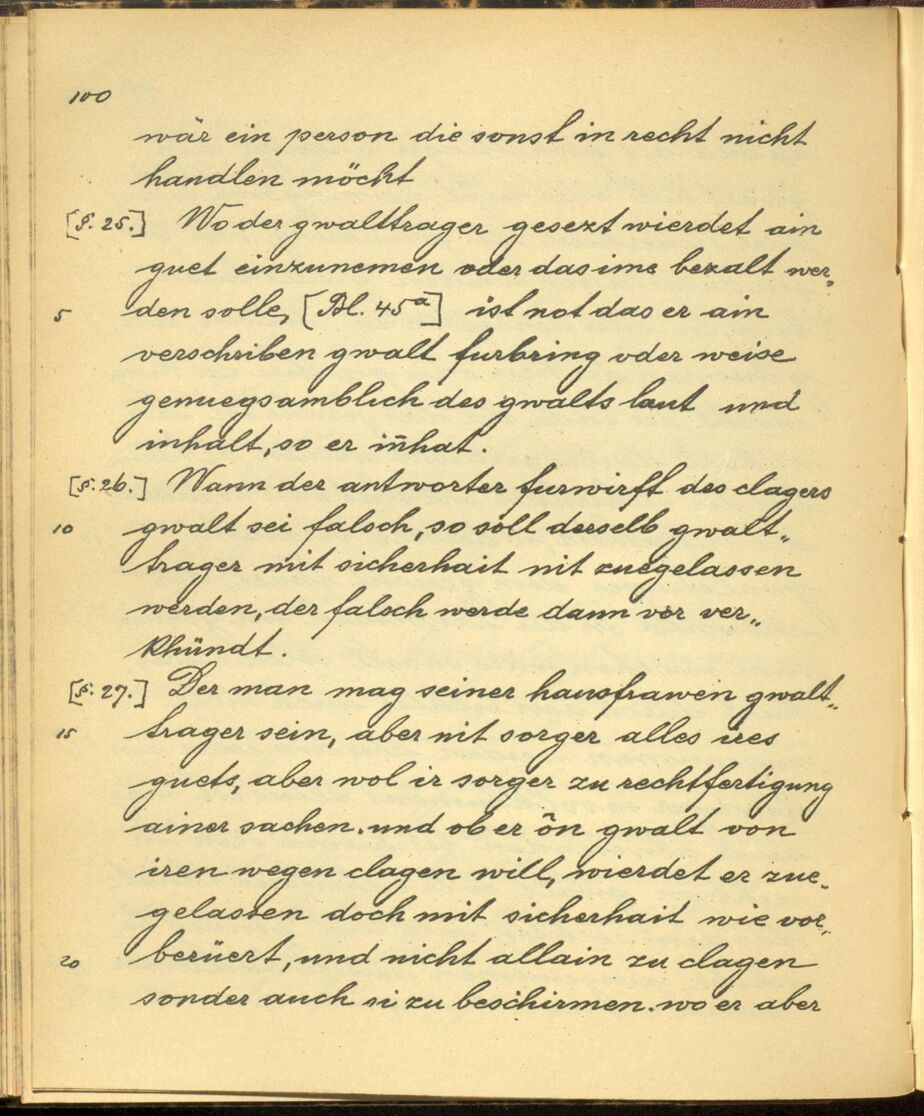 100
wär ein person die sonst in recht nicht
handlen möcht
[§. 25.] Wo der gwalttrager gesezt wierdet ain
guet einzunemen oder das ime bezalt wer„
5 den solle, [Bl. 45a] ist not das er ain
verschriben gwalt furbring oder weise
genuegsamblich des gwalts laut und
inhalt, so er iñhat.
[§. 26.] Wann der antworter furwirft des clagers
10 gwalt sei falsch, so soll derselb gwalt„
trager mit sicherhait nit zuegelassen
werden, der falsch werde dann vor ver„
khündt.
[§. 27.] Der man mag seiner hausfrawen gwalt„
15 trager sein, aber nit sorger alles ires
guets, aber wol ir sorger zu rechtfertigung
ainer sachen. und ob er ôn gwalt von
iren wegen clagen will, wierdet er zue„
gelassen doch mit sicherhait wie vor„
20 berüert, und nicht allain zu clagen
sonder auch si zu beschirmen. wo er aber